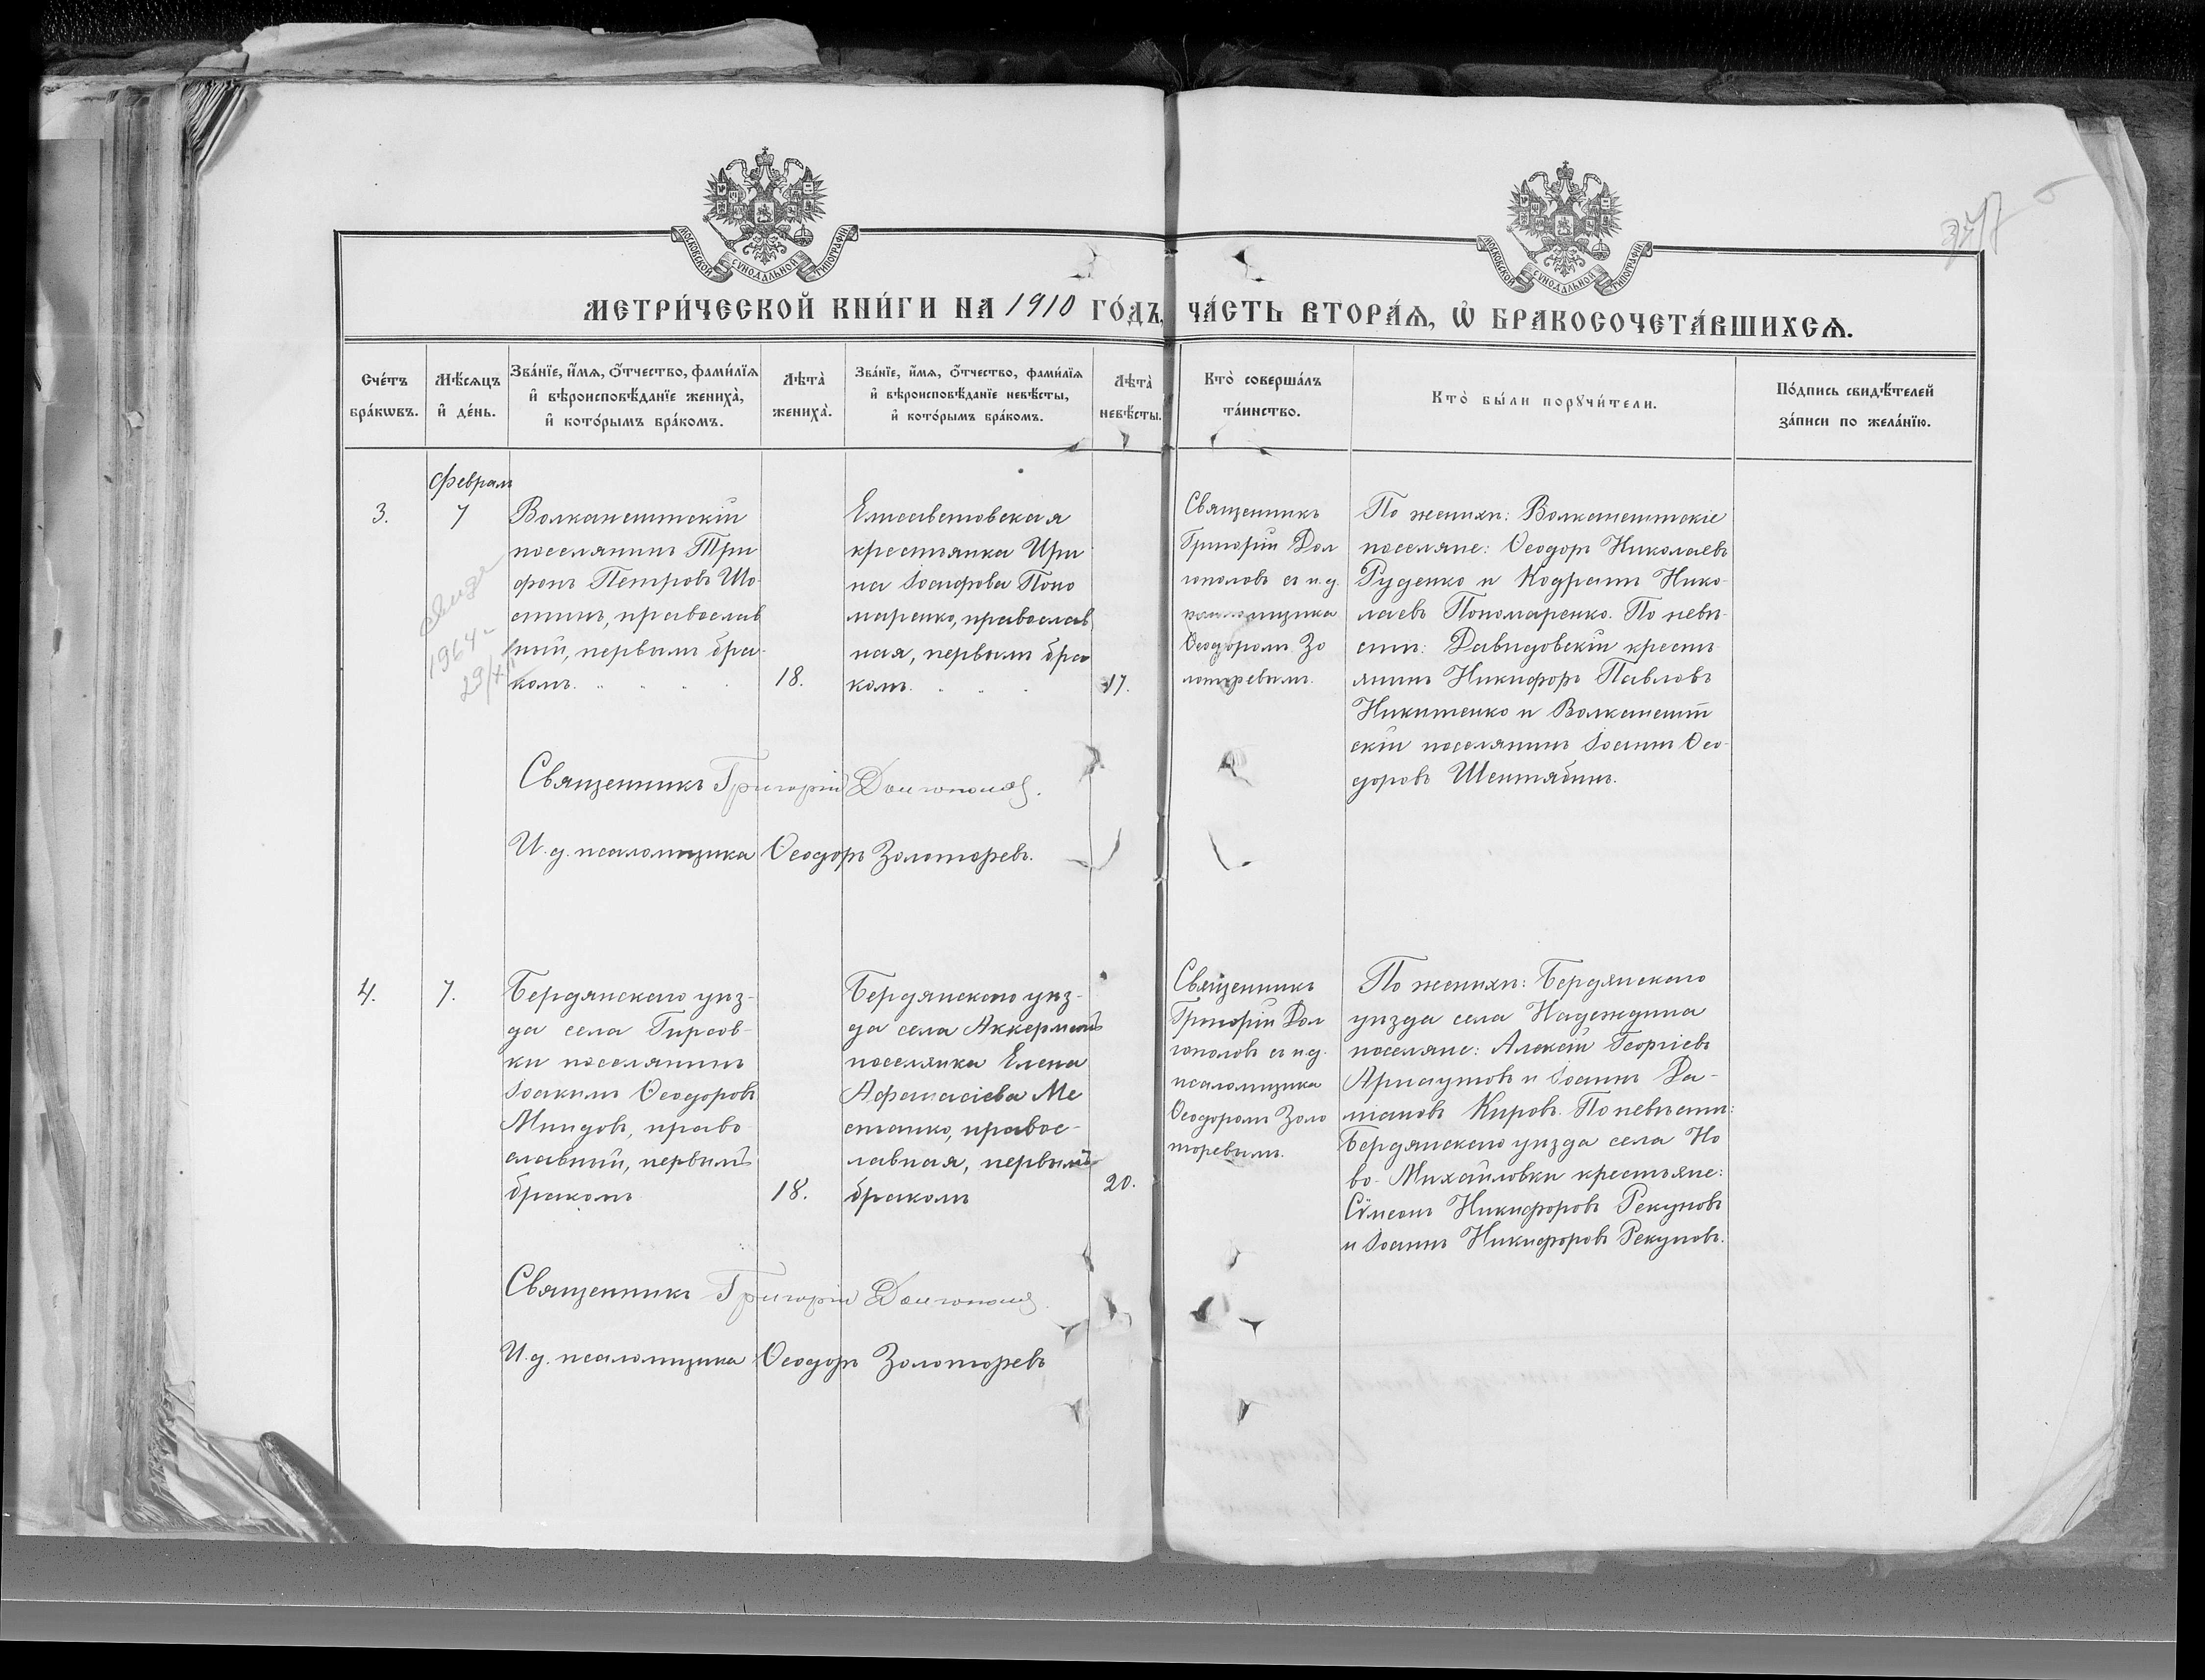 МОСКОВСКОЙ СѴНОДАЛЬНОЙ ТИПОГРАФІИ
МОСКОВСКОЙ СѴНОДАЛЬНОЙ ТИПОГРАФІИ
МЕТРИ́ЧЕСКОЙ КНИ́ГИ НА 1910 ГО́ДЪ, ЧА́СТЬ ВТОРА́Ѧ, Ѽ БРАКОСОЧЕТА́ВШИХСѦ.
Сче́тъ
бра́кѡвъ.
Мѣ́сѧцъ
и҆ де́нь.
Зва́нїе, и҆́мѧ, ѻ҆́тчество, фами́лїѧ
и҆ вѣроисповѣ́данїе жениха̀,
и҆ кото́рымъ бра́комъ.
Лѣта̀
жениха̀.
Зва́нїе, и҆́мѧ, ѻ҆́тчество, фами́лїѧ
и҆ вѣроисповѣ́данїе невѣ́сты,
и҆ кото́рымъ бра́комъ.
Лѣта̀
невѣ́сты.
Кто̀ соверша́лъ
та́инство.
Кто̀ бы́ли порꙋчи́тели.
По́дпись свидѣ́телей
за́писи по жела́нїю.
Февраль
3.
7
Волканештскій
поселянинъ Три
фонъ Петровъ Шо
стинъ, православ
ный, первымъ бра-
комъ.
18.
Елисаветовская
крестьянка Ири
на Іосифова Поно
маренко, православ
ная, первымъ бра
комъ.
17.
Священникъ
Григорій Дол
гополовъ съ и.д.
псаломщика
Ѳеодоромъ Зо
лоторевымъ.
По женихѣ: Волканештскіе
поселяне: Ѳеодоръ Николаевъ
Руденко и Кодратъ Нико-
лаевъ Пономаренко. По невѣ-
стѣ: Давидовскій кресть
янинъ Никифоръ Павловъ
Никитенко и Волканешт
скій поселянинъ Іоаннъ Ѳео-
доровъ Шентябинъ.
1964
29/X
Священникъ Григорій Долгополов.
И.д. псаломщика Ѳеодоръ Золоторевъ.
4.
7.
Бердянскаго уѣз-
да села Гирсов-
ки поселянинъ
Іоакимъ Ѳеодоровъ
Миндовъ, право
славный, первымъ
бракомъ
18.
Бердянскаго уѣз-
да села Аккерманъ
поселянка Елена
Афанасіева Ме
станко, правос-
лавная, первымъ
бракомъ
20.
Священникъ
Григорій Дол
гополовъ съ и.д.
псаломщика
Ѳеодоромъ Золо
торевымъ.
По женихѣ: Бердянскаго
уѣзда села Надеждина
поселяне: Алексій Георгіевъ
Арнаутовъ и Іоаннъ Да-
міановъ Кировъ. По невѣстѣ:
Бердянскаго уѣзда села Но
во-Михайловки крестьяне:
Сѵмеонъ Никифоровъ Рекуновъ
и Іоаннъ Никифоровъ Рекуновъ.
Священникъ Григорій Долгополов
И.д. псаломщика Ѳеодоръ Золоторевъ